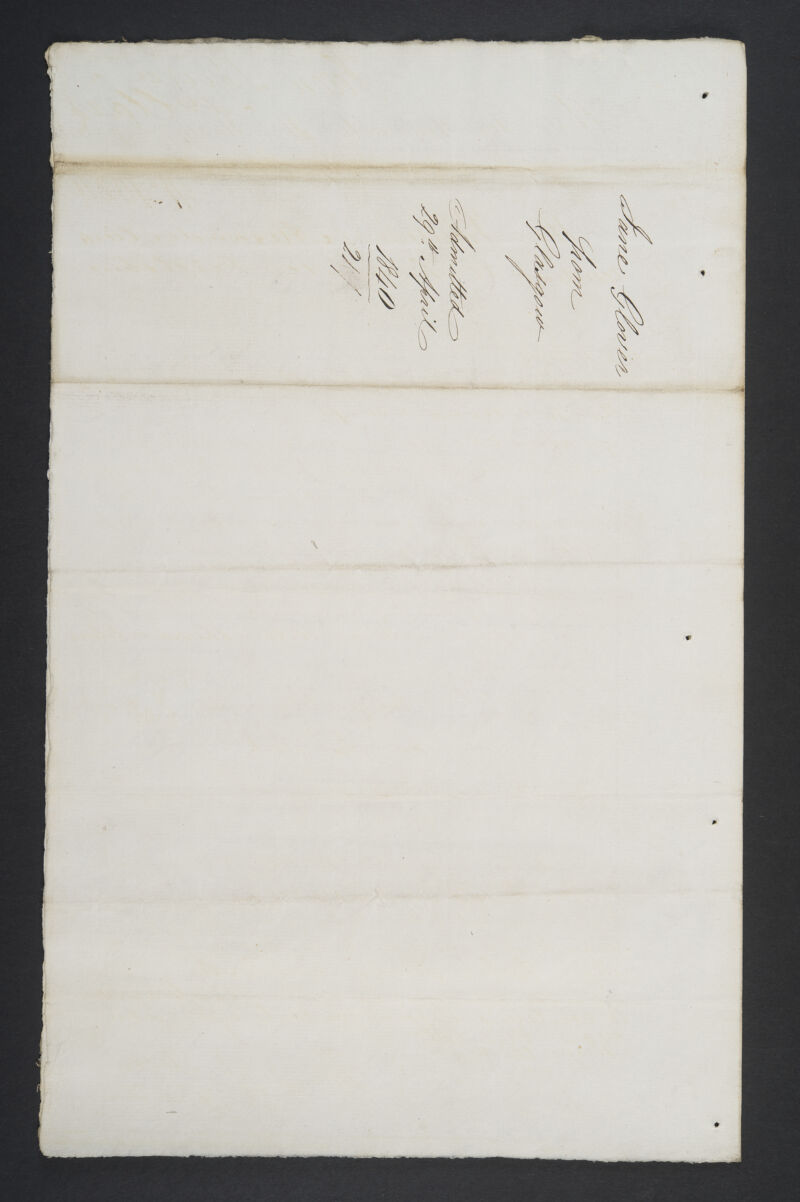 Jane Glover
from
Glasgow
Admitted
29th April
1840